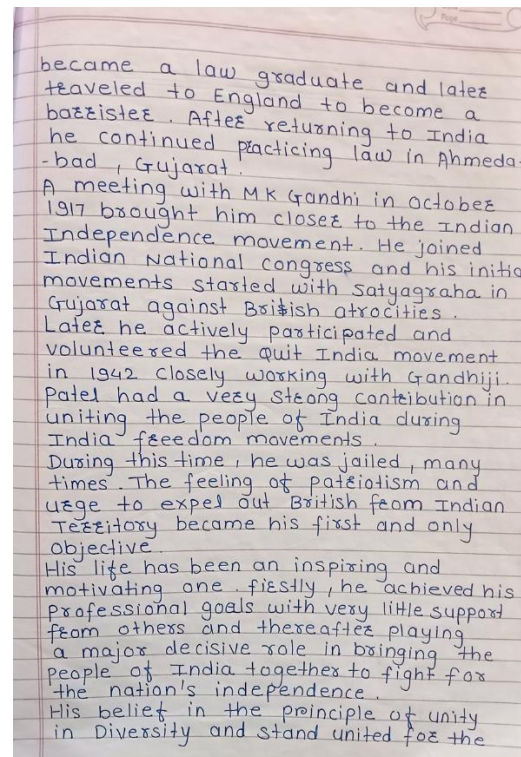 Page
became a law graduate and later
traveled to England to become a
barrister. After returning to India
he continued practicing law in Ahmeda-
-bad, Gujarat.
A meeting with MK Gandhi in october
1917 brought him closer to the Indian
Independence movement. He joined
Indian National congress and his initia
movements started with satyagraha in
Gujarat against British atrocities.
Later he actively participated and
volunteered the Quit India movement
in 1942 closely working with Gandhiji.
Patel had a very strong contribution in
uniting the people of India during
India freedom movements.
During this time, he was jailed, many
times. The feeling of patriotism and
urge to expel out British from Indian
Territory became his first and only
objective.
His life has been an inspiring and
motivating one. firstly, he achieved his
professional goals with very little support
from others and thereafter playing
a major decisive role in bringing the
people of India together to fight for
the nation's independence.
His belief in the principle of unity
in Diversity and stand united for the